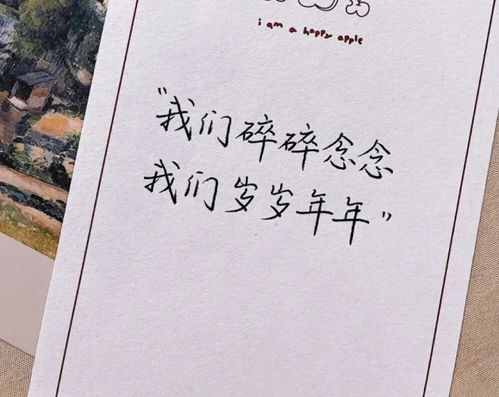 i am a happy apple
“我们碎碎念念
我们岁岁年年”